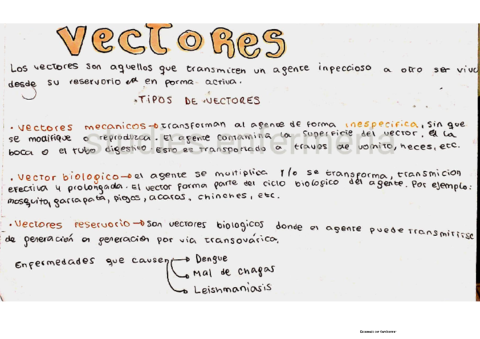 VECTORES
Los vectores son aquellos que transmiten un agente infeccioso a otro ser vivo
desde su reservorio en forma activa.
• TIPOS DE VECTORES
• Vectores mecanicos → transforman al agente de forma inespecifica, sin que
se modifique o reproduzca. El agente contamina la superficie del vector, la
boca o el tubo digestivo. Esto es transportado a traves de vomito, heces, etc.
studies enfermeria
• Vector biologico → el agente se multiplica y/o se transforma, transmicion
efectiva y prolongada. El vector forma parte del ciclo biologico del agente. Por ejemplo:
mosquito, garrapata, piojos, acaros, chinches, etc.
• Vectores reservorio → son vectores biologicos donde el agente puede transmitirse
de generación en generación por via transovárica.
Enfermedades que causen → Dengue
→ Mal de chagas
→ Leishmaniasis